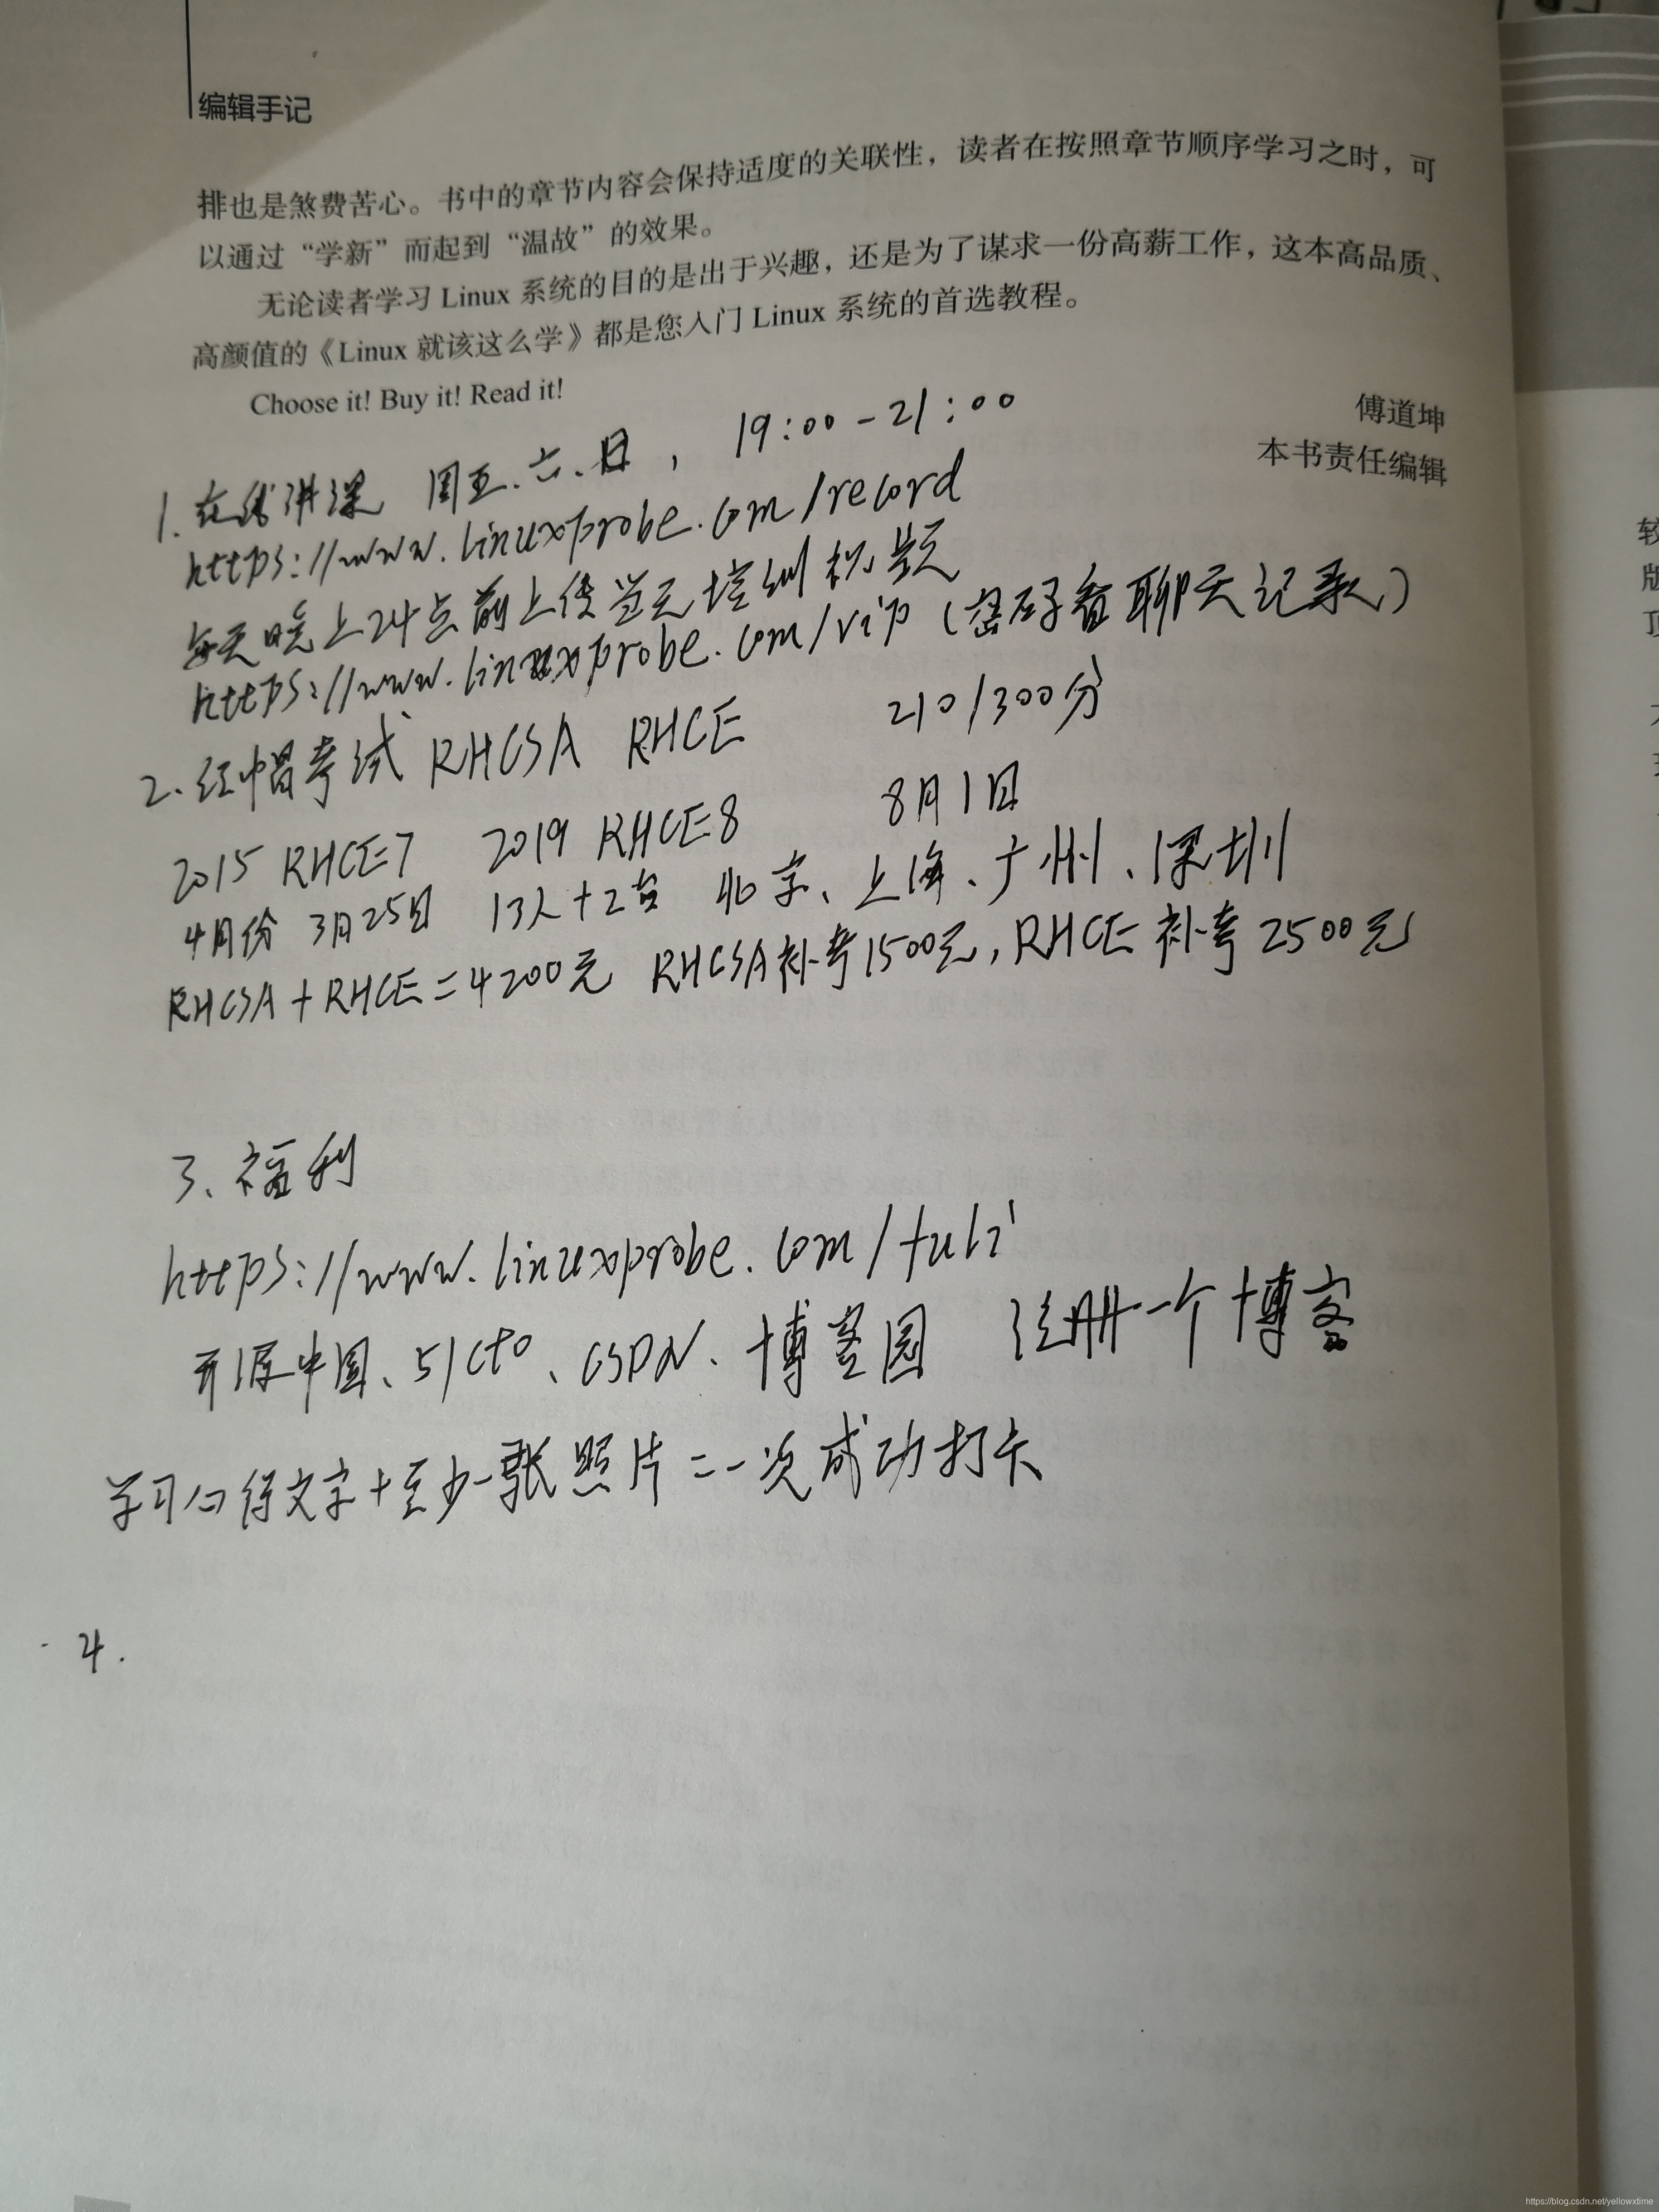 编辑手记
排也是煞费苦心。书中的章节内容会保持适度的关联性，读者在按照章节顺序学习之时，可
以通过“学新”而起到“温故”的效果。
无论读者学习 Linux 系统的目的是出于兴趣，还是为了谋求一份高薪工作，这本高品质、
高颜值的《Linux 就该这么学》都是您入门 Linux 系统的首选教程。
Choose it! Buy it! Read it!
傅道坤
本书责任编辑
1. 在线讲课 周五、六、日， 19:00-21:00
https://www.linuxprobe.com/record
每天晚上24点前上传当天培训视频
https://www.linuxprobe.com/vip (密码看聊天记录)
2. 红帽考试 RHCSA RHCE 210/300分
2015 RHCE7 2019 RHCE8 8月1日
4月份 3月25日 13人+2台 北京、上海、广州、深圳
RHCSA+RHCE=4200元 RHCSA补考1500元, RHCE补考2500元
3、福利
https://www.linuxprobe.com/fuli
开源中国、51CTO、CSDN、博客园 注册一个博客
学习心得文字+至少一张照片=一次成功打卡
4.
较
版
https://blog.csdn.net/yellowxtime